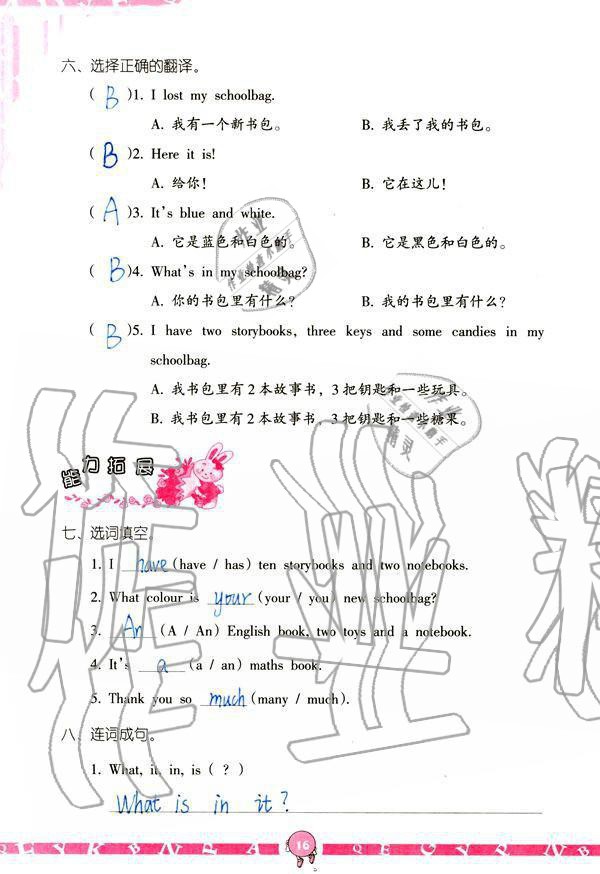 六、选择正确的翻译。
( B )1. I lost my schoolbag.
A. 我有一个新书包。 B. 我丢了我的书包。
( B )2. Here it is!
A. 给你! B. 它在这儿!
( A )3. It's blue and white.
A. 它是蓝色和白色的。 B. 它是黑色和白色的。
( B )4. What's in my schoolbag?
A. 你的书包里有什么? B. 我的书包里有什么?
( B )5. I have two storybooks, three keys and some candies in my
schoolbag.
A. 我书包里有2本故事书,3把钥匙和一些玩具。
B. 我书包里有2本故事书,3把钥匙和一些糖果。
能力拓展
七、选词填空。
1. I have (have / has) ten storybooks and two notebooks.
2. What colour is your (your / you) new schoolbag?
3. An (A / An) English book, two toys and a notebook.
4. It's a (a / an) maths book.
5. Thank you so much (many / much).
八、连词成句。
1. What, it, in, is ( ? )
What is in it?
16